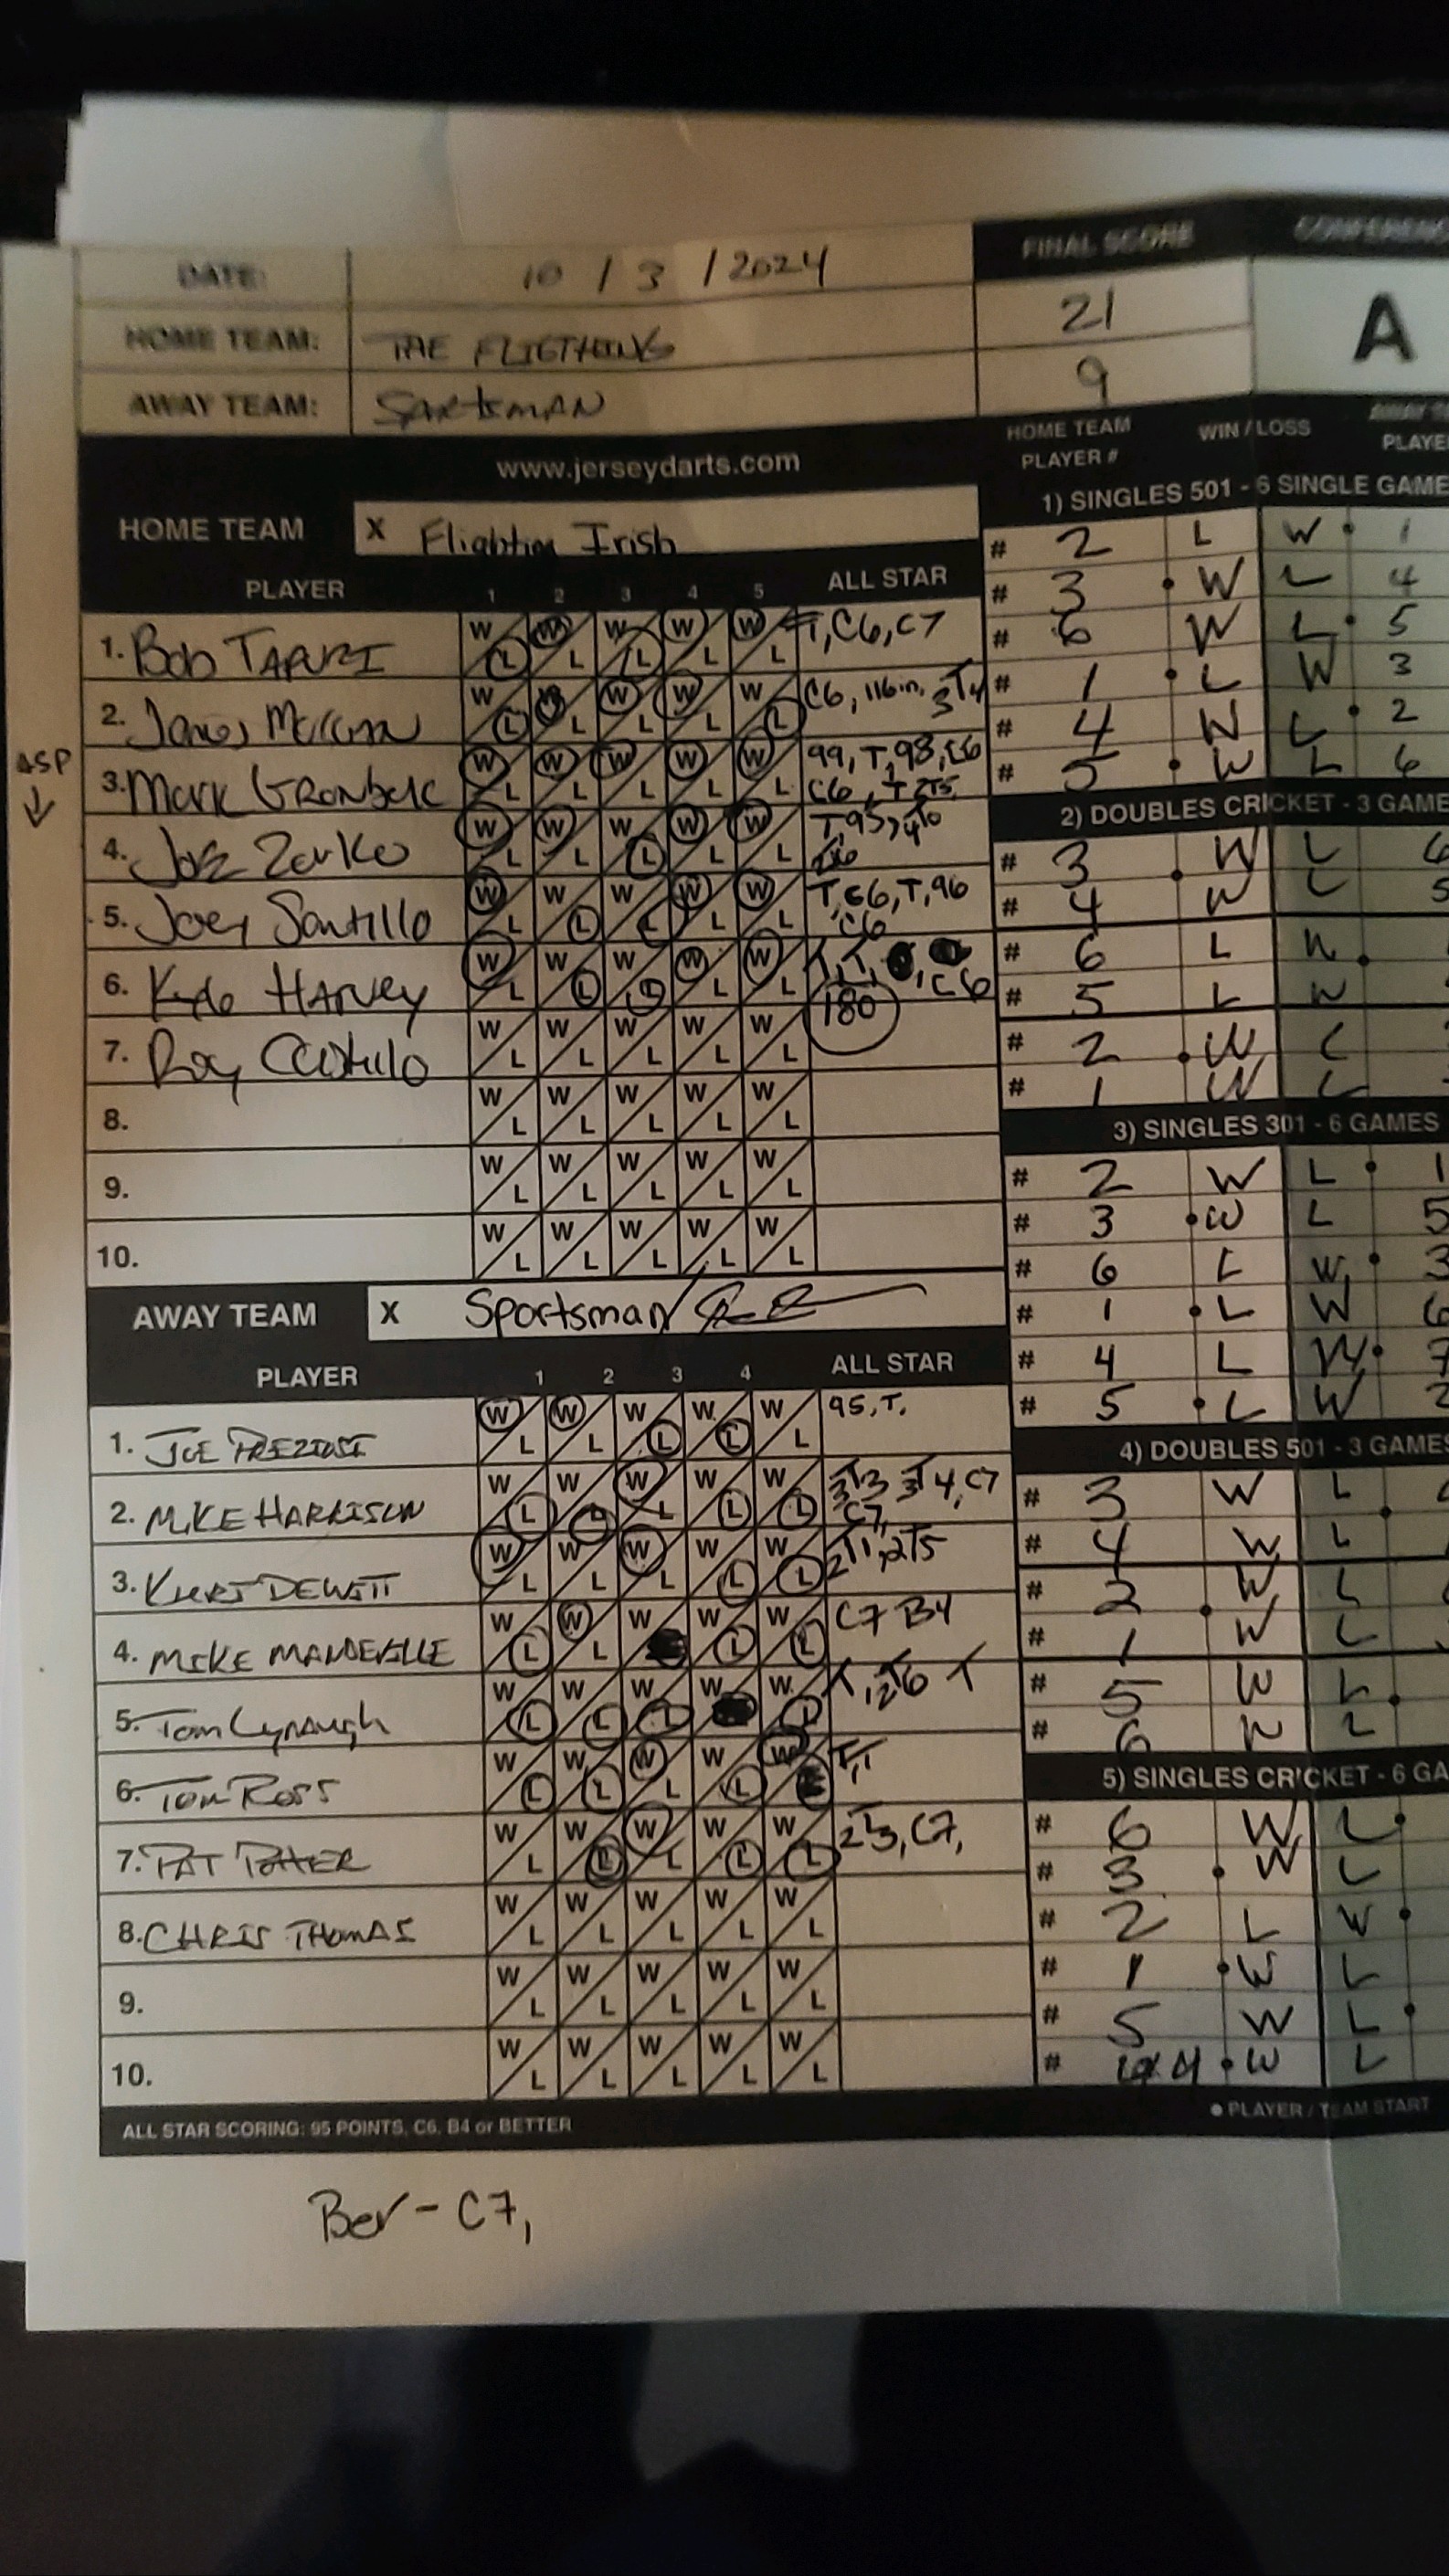 DATE: 10 / 3 / 2024
HOME TEAM: THE FLIGTHING
AWAY TEAM: SPORTSMAN
FINAL SCORE
21
9
A
www.jerseydarts.com
HOME TEAM X Flighting Irish
PLAYER 1 2 3 4 5 ALL STAR
ASP
1. Bob TAPURI W L W L W L W L W L T, C6, C7
2. James W L W L W L W L W L C6, 116in,
3. Mark W L W L W L W L W L 99, T, 98, C6
C6
4. Zonko W L W L W L W L W L T, 95,
5. Joey Santillo W L W L W L W L W L T, C6, T, 96
C6
6. Kyle HARVEY W L W L W L W L W L T, T, C6
180
7. Roy W L W L W L W L W L
8. W L W L W L W L W L
9. W L W L W L W L W L
10. W L W L W L W L W L
AWAY TEAM X Sportsman
PLAYER 1 2 3 4 ALL STAR
1. JOE PREZIOSI W L W L W L W L W L 95, T.
2. MIKE HARRISON W L W L W L W L W L 3T3 3T4, C7
C7,
3. KURT DEWITT W L W L W L W L W L 2T1, 2T5
4. MIKE MANDEVILLE W L W L W W L W L C7 B4
5. Tom Lynaugh W L W L W L W W L T, 2T6 T
6. Tom Ross W L W L W L W L W T, T
7. PAT POTTER W L W L W L W L W L 2T3, C7,
8. CHRIS THOMAS W L W L W L W L W L
9. W L W L W L W L W L
10. W L W L W L W L W L
ALL STAR SCORING: 95 POINTS, C6, B4 or BETTER
HOME TEAM PLAYER # WIN / LOSS
1) SINGLES 501 - 6 SINGLE GAME
# 2 L W 1
# 3 W L 4
# 6 W L 5
# 1 L W 3
# 4 W L 2
# 5 W L 6
2) DOUBLES CRICKET - 3 GAME
# 3 W L 6
# 4 W L 5
# 6 L W
# 5 L W
# 2 W L
# 1 W L
3) SINGLES 301 - 6 GAMES
# 2 W L 1
# 3 W L 5
# 6 L W 3
# 1 L W 6
# 4 L W 7
# 5 L W 2
4) DOUBLES 501 - 3 GAMES
# 3 W L
# 4 W L
# 2 W L
# 1 W L
# 5 W L
# 6 W L
5) SINGLES CRICKET - 6 GA
# 6 W L
# 3 W L
# 2 L W
# 1 W L
# 5 W L
# 4 W L
PLAYER / TEAM START
Bev - C7,